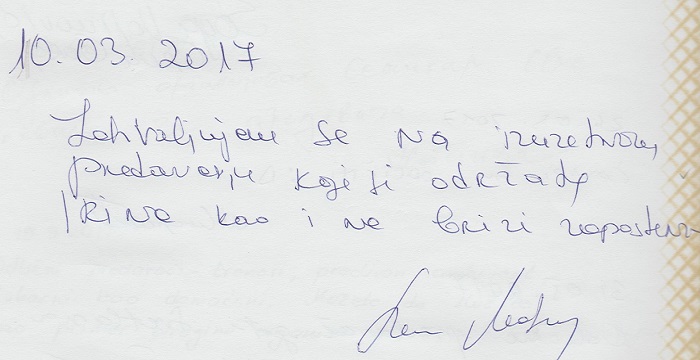 10.03. 2017
Zahvaljujem se na izuzetnom
predavanju koje si održala
Irina kao i na brizi zaposlenih